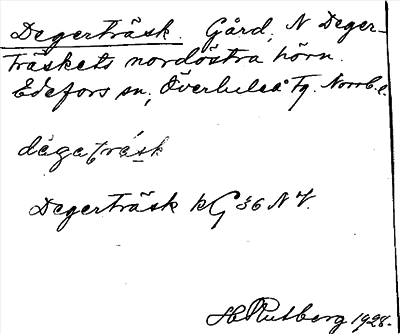 Degerträsk. Gård, N Deger-
träskets nordöstra hörn.
Edefors sn, Överluleå Tg. Norrb. l.
degaträsk
Degerträsk kG 36 N V.
H Rutberg 1928.